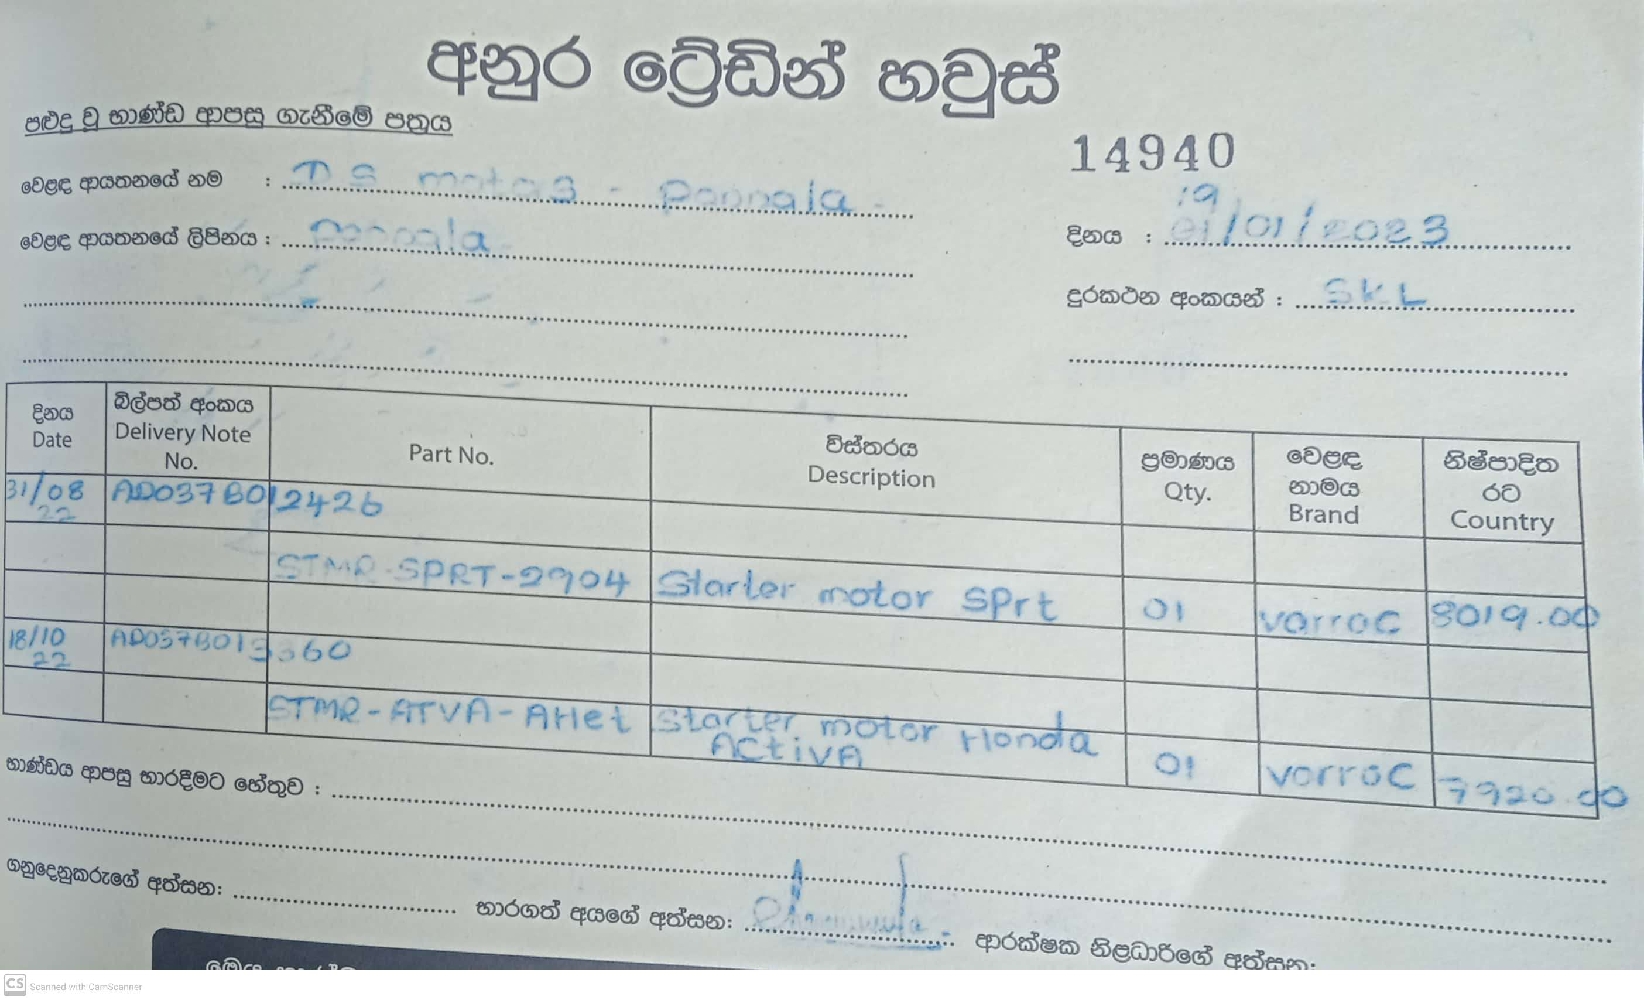 අනුර ට්‍රේඩින් හවුස්
පළුදු වූ භාණ්ඩ ආපසු ගැනීමේ පත්‍රය
14940
වෙළඳ ආයතනයේ නම : D S motors - Pannala
19
දිනය : 01/01/2023
වෙළඳ ආයතනයේ ලිපිනය : Pannala
දුරකථන අංකයන් : SKL
දිනය Date බිල්පත් අංකය Delivery Note No. Part No. විස්තරය Description ප්‍රමාණය Qty. වෙළඳ නාමය Brand නිෂ්පාදිත රට Country
31/08 22 AD037B012426
STMR-SPRT-2904 Starter motor SPrt 01 varroc 8019.00
18/10 22 AD037B013060
STMR-ATVA-AHet Starter motor Honda ActivA 01 varroc 7920.00
භාණ්ඩය ආපසු භාරදීමට හේතුව :
ගනුදෙනුකරුගේ අත්සන: භාරගත් අයගේ අත්සන: ආරක්ෂක නිළධාරිගේ අත්සන:
CS Scanned with CamScanner